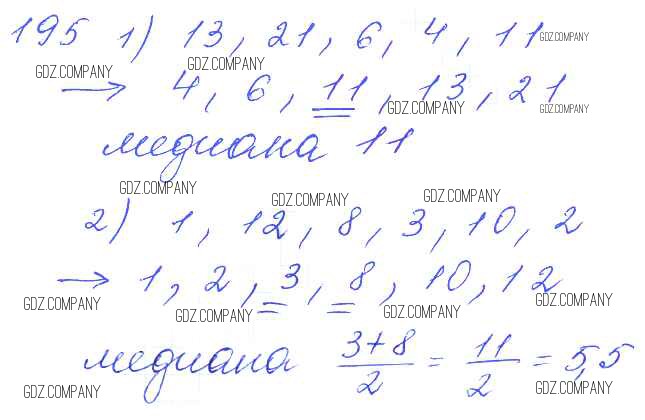 195 1) 13, 21, 6, 4, 11 GDZ.COMPANY
GDZ.COMPANY GDZ.COMPANY
→ 4, 6, 11, 13, 21
GDZ.COMPANY GDZ.COMPANY
медиана 11
GDZ.COMPANY GDZ.COMPANY GDZ.COMPANY
2) 1, 12, 8, 3, 10, 2
→ 1, 2, 3, 8, 10, 12
GDZ.COMPANY GDZ.COMPANY GDZ.COMPANY GDZ.COMPANY
медиана (3+8)/2 = 11/2 = 5,5
GDZ.COMPANY GDZ.COMPANY